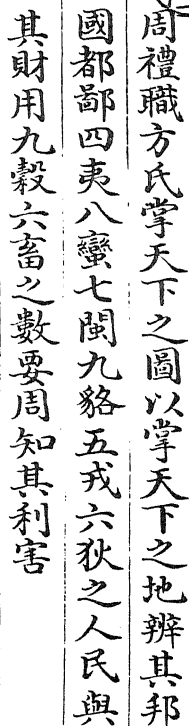 周禮職方氏掌天下之圖以掌天下之地辨其邦
國都鄙四夷八蠻七閩九貉五戎六狄之人民與
其財用九穀六畜之數要周知其利害